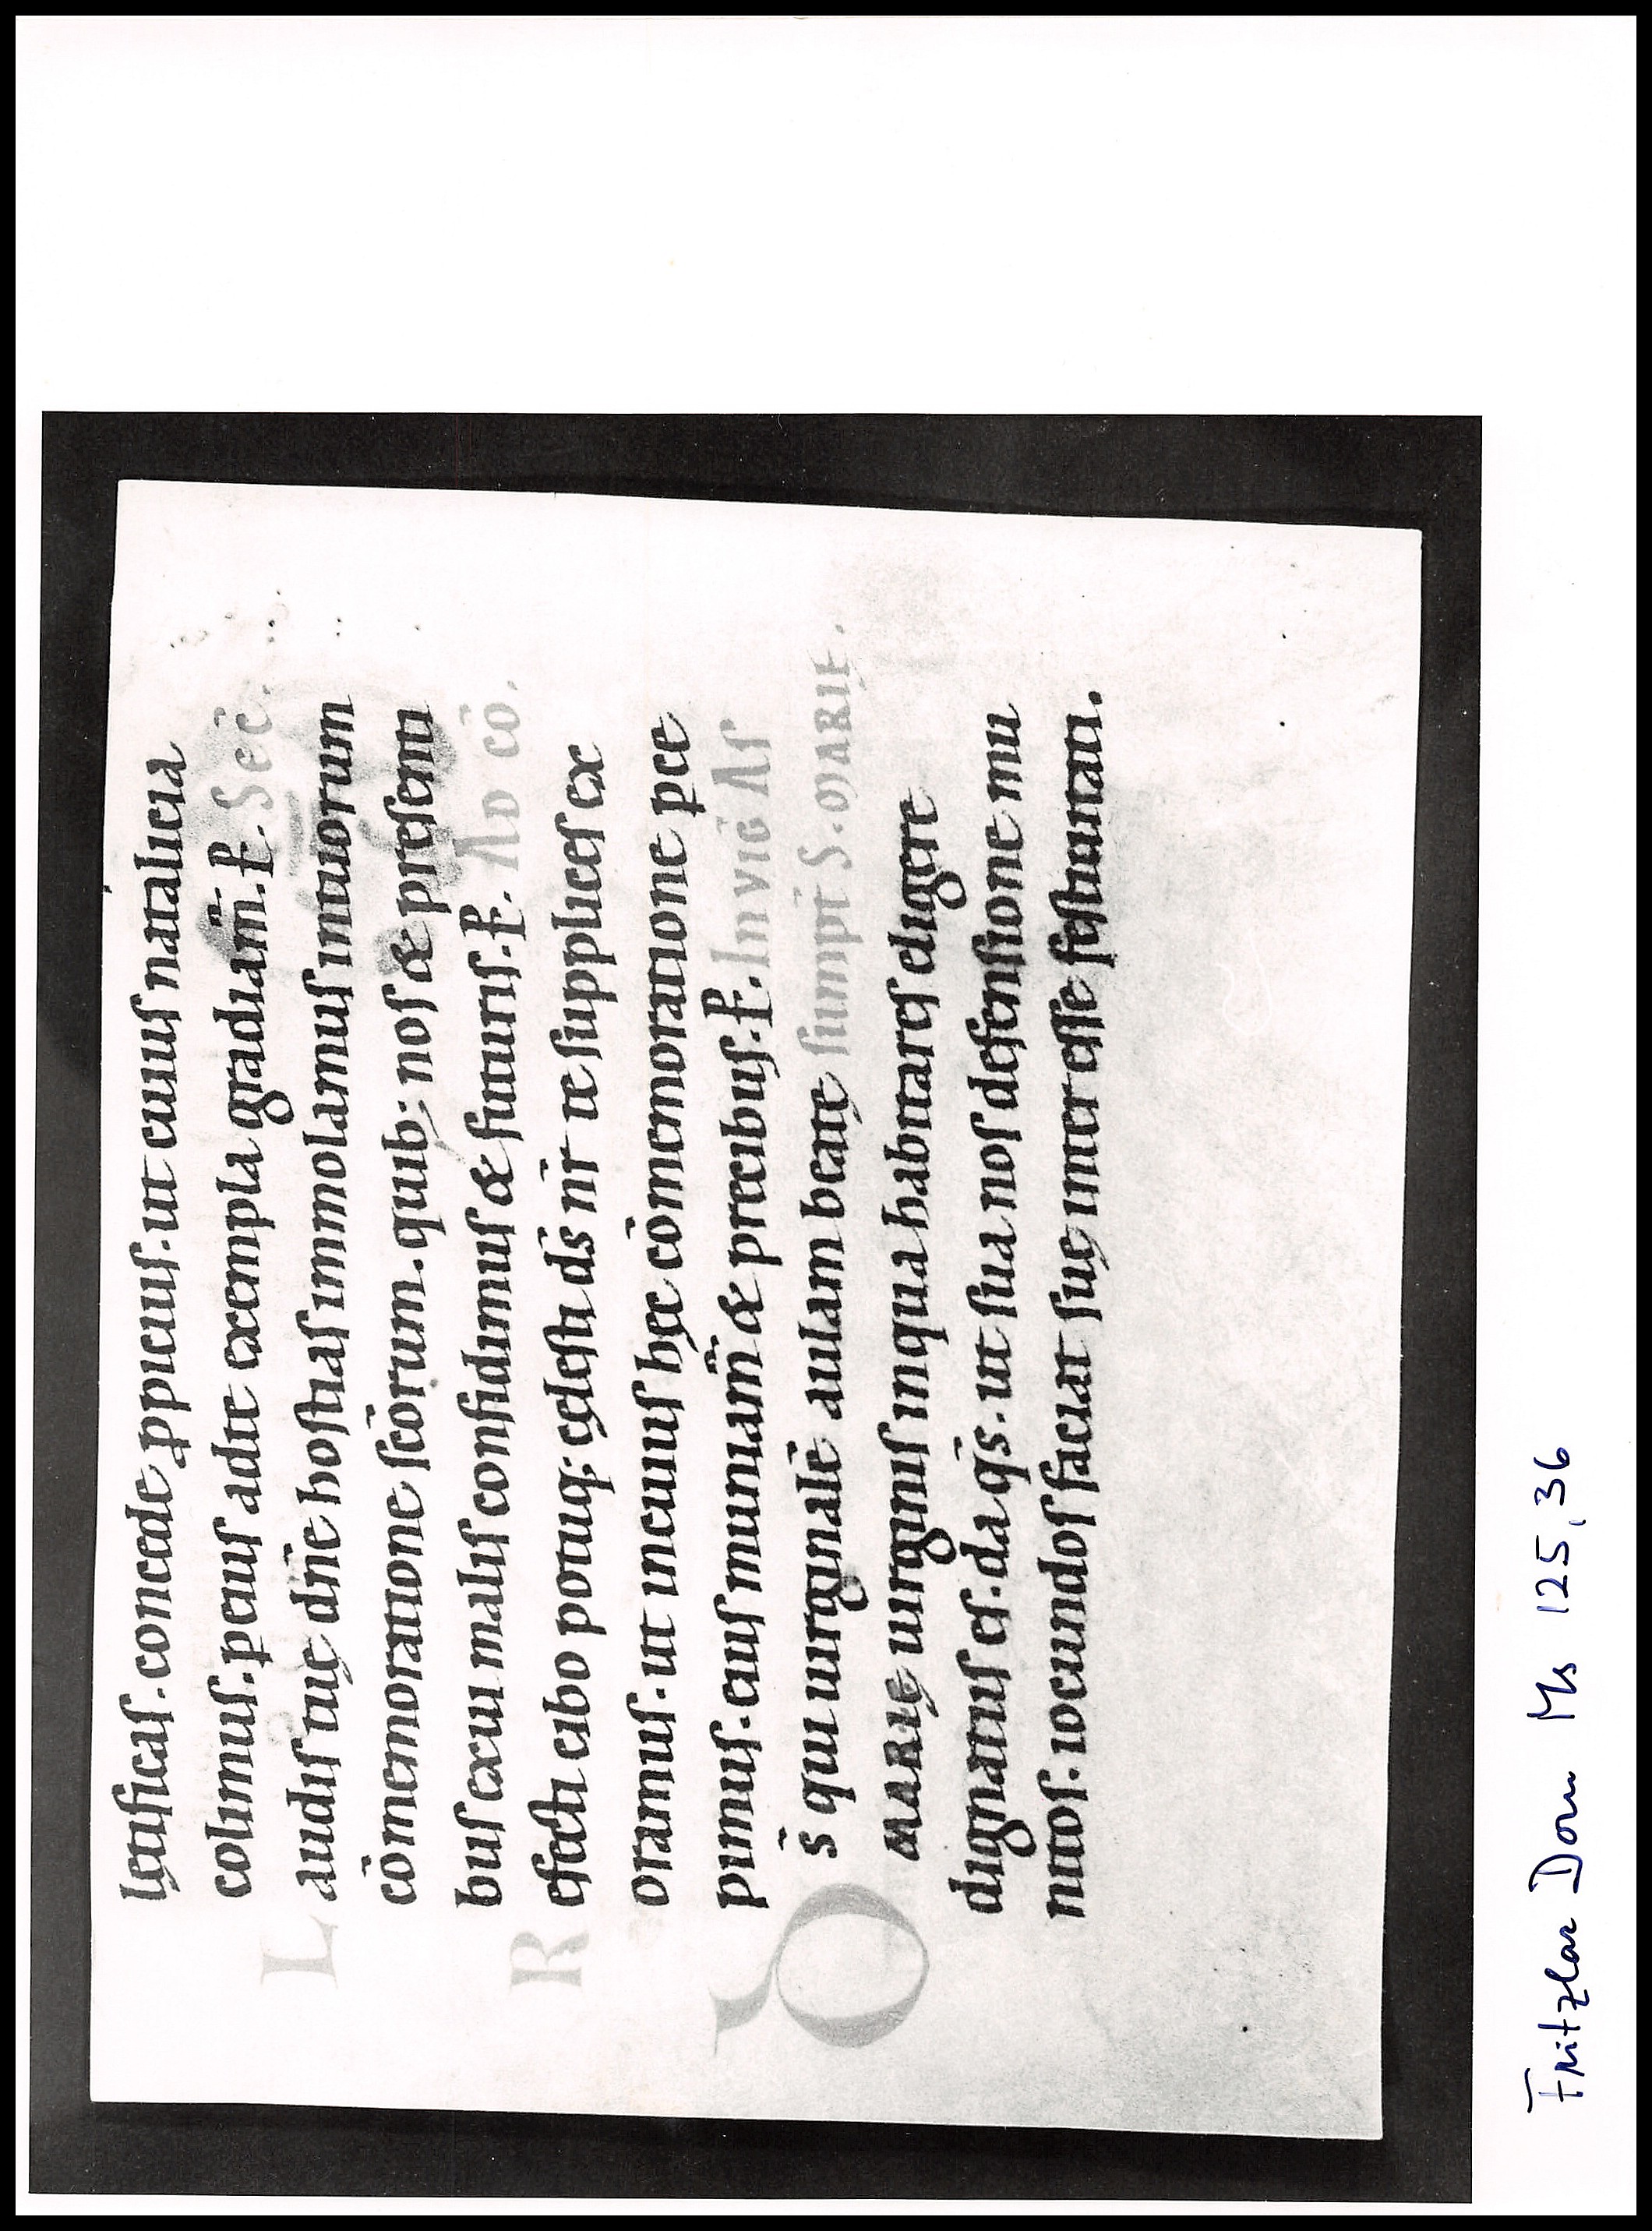 lętificas. concede ꝓpicius. ut cuius natalicia
colimus. ꝑ eius ad te exempla gradiam̄. P̲. Sec̄.
L audis tuę dn̄e hostias immolamus in tuorum
cōmemoratione sc̄orum. quib; nos & presenti
bus exui malis confidimus & futuris. P̲. Ad cō.
R efecti cibo potuq; cęlesti ds̄ nr̄ te supplices ex
oramus. ut in cuius hęc cōmemoratione ꝑce
pimus. eius muniam̄ & precibus. P̲. In vig̅ As
O s̄ qui uirginalē aulam beatę sumpt̄ S. MARIE.
MARIĘ uirginis in qua habitares eligere
dignatus es. da qs̄. ut sua nos defensione mu
nitos. iocundos faciat suę interesse festiuitati.
Fritzlar Dom Ms 125,36